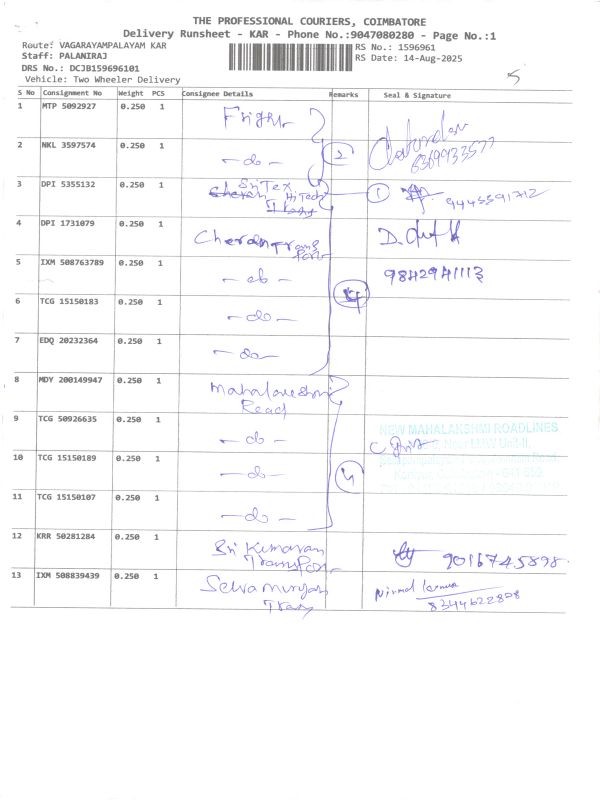 THE PROFESSIONAL COURIERS, COIMBATORE
Delivery Runsheet - KAR - Phone No.:9047080280 - Page No.:1
Route: VAGARAYAMPALAYAM KAR
RS No.: 1596961
Staff: PALANIRAJ
RS Date: 14-Aug-2025
DRS No.: DCJB159696101
Vehicle: Two Wheeler Delivery
5
S No Consignment No Weight PCS Consignee Details Remarks Seal & Signature
1 MTP 5092927 0.250 1
2 NKL 3597574 0.250 1 - do - 2 6369933577
3 DPI 5355132 0.250 1 Sri Tex Hi Tech 1 9445591712
4 DPI 1731079 0.250 1 Cheran Trans D.
5 IXM 508763789 0.250 1 - do - 9842941113
6 TCG 15150183 0.250 1 - do - 4
7 EDQ 20232364 0.250 1 - do -
8 MDY 200149947 0.250 1 Mahalakshmi
Road
9 TCG 50926635 0.250 1 - do -
NEW MAHALAKSHMI ROADLINES
10 TCG 15150189 0.250 1 - do - 4
11 TCG 15150107 0.250 1 - do -
12 KRR 50281284 0.250 1 Sri Kumaran
Transport 9016745898
13 IXM 508839439 0.250 1 Selvamurugan
Trans 8344622808